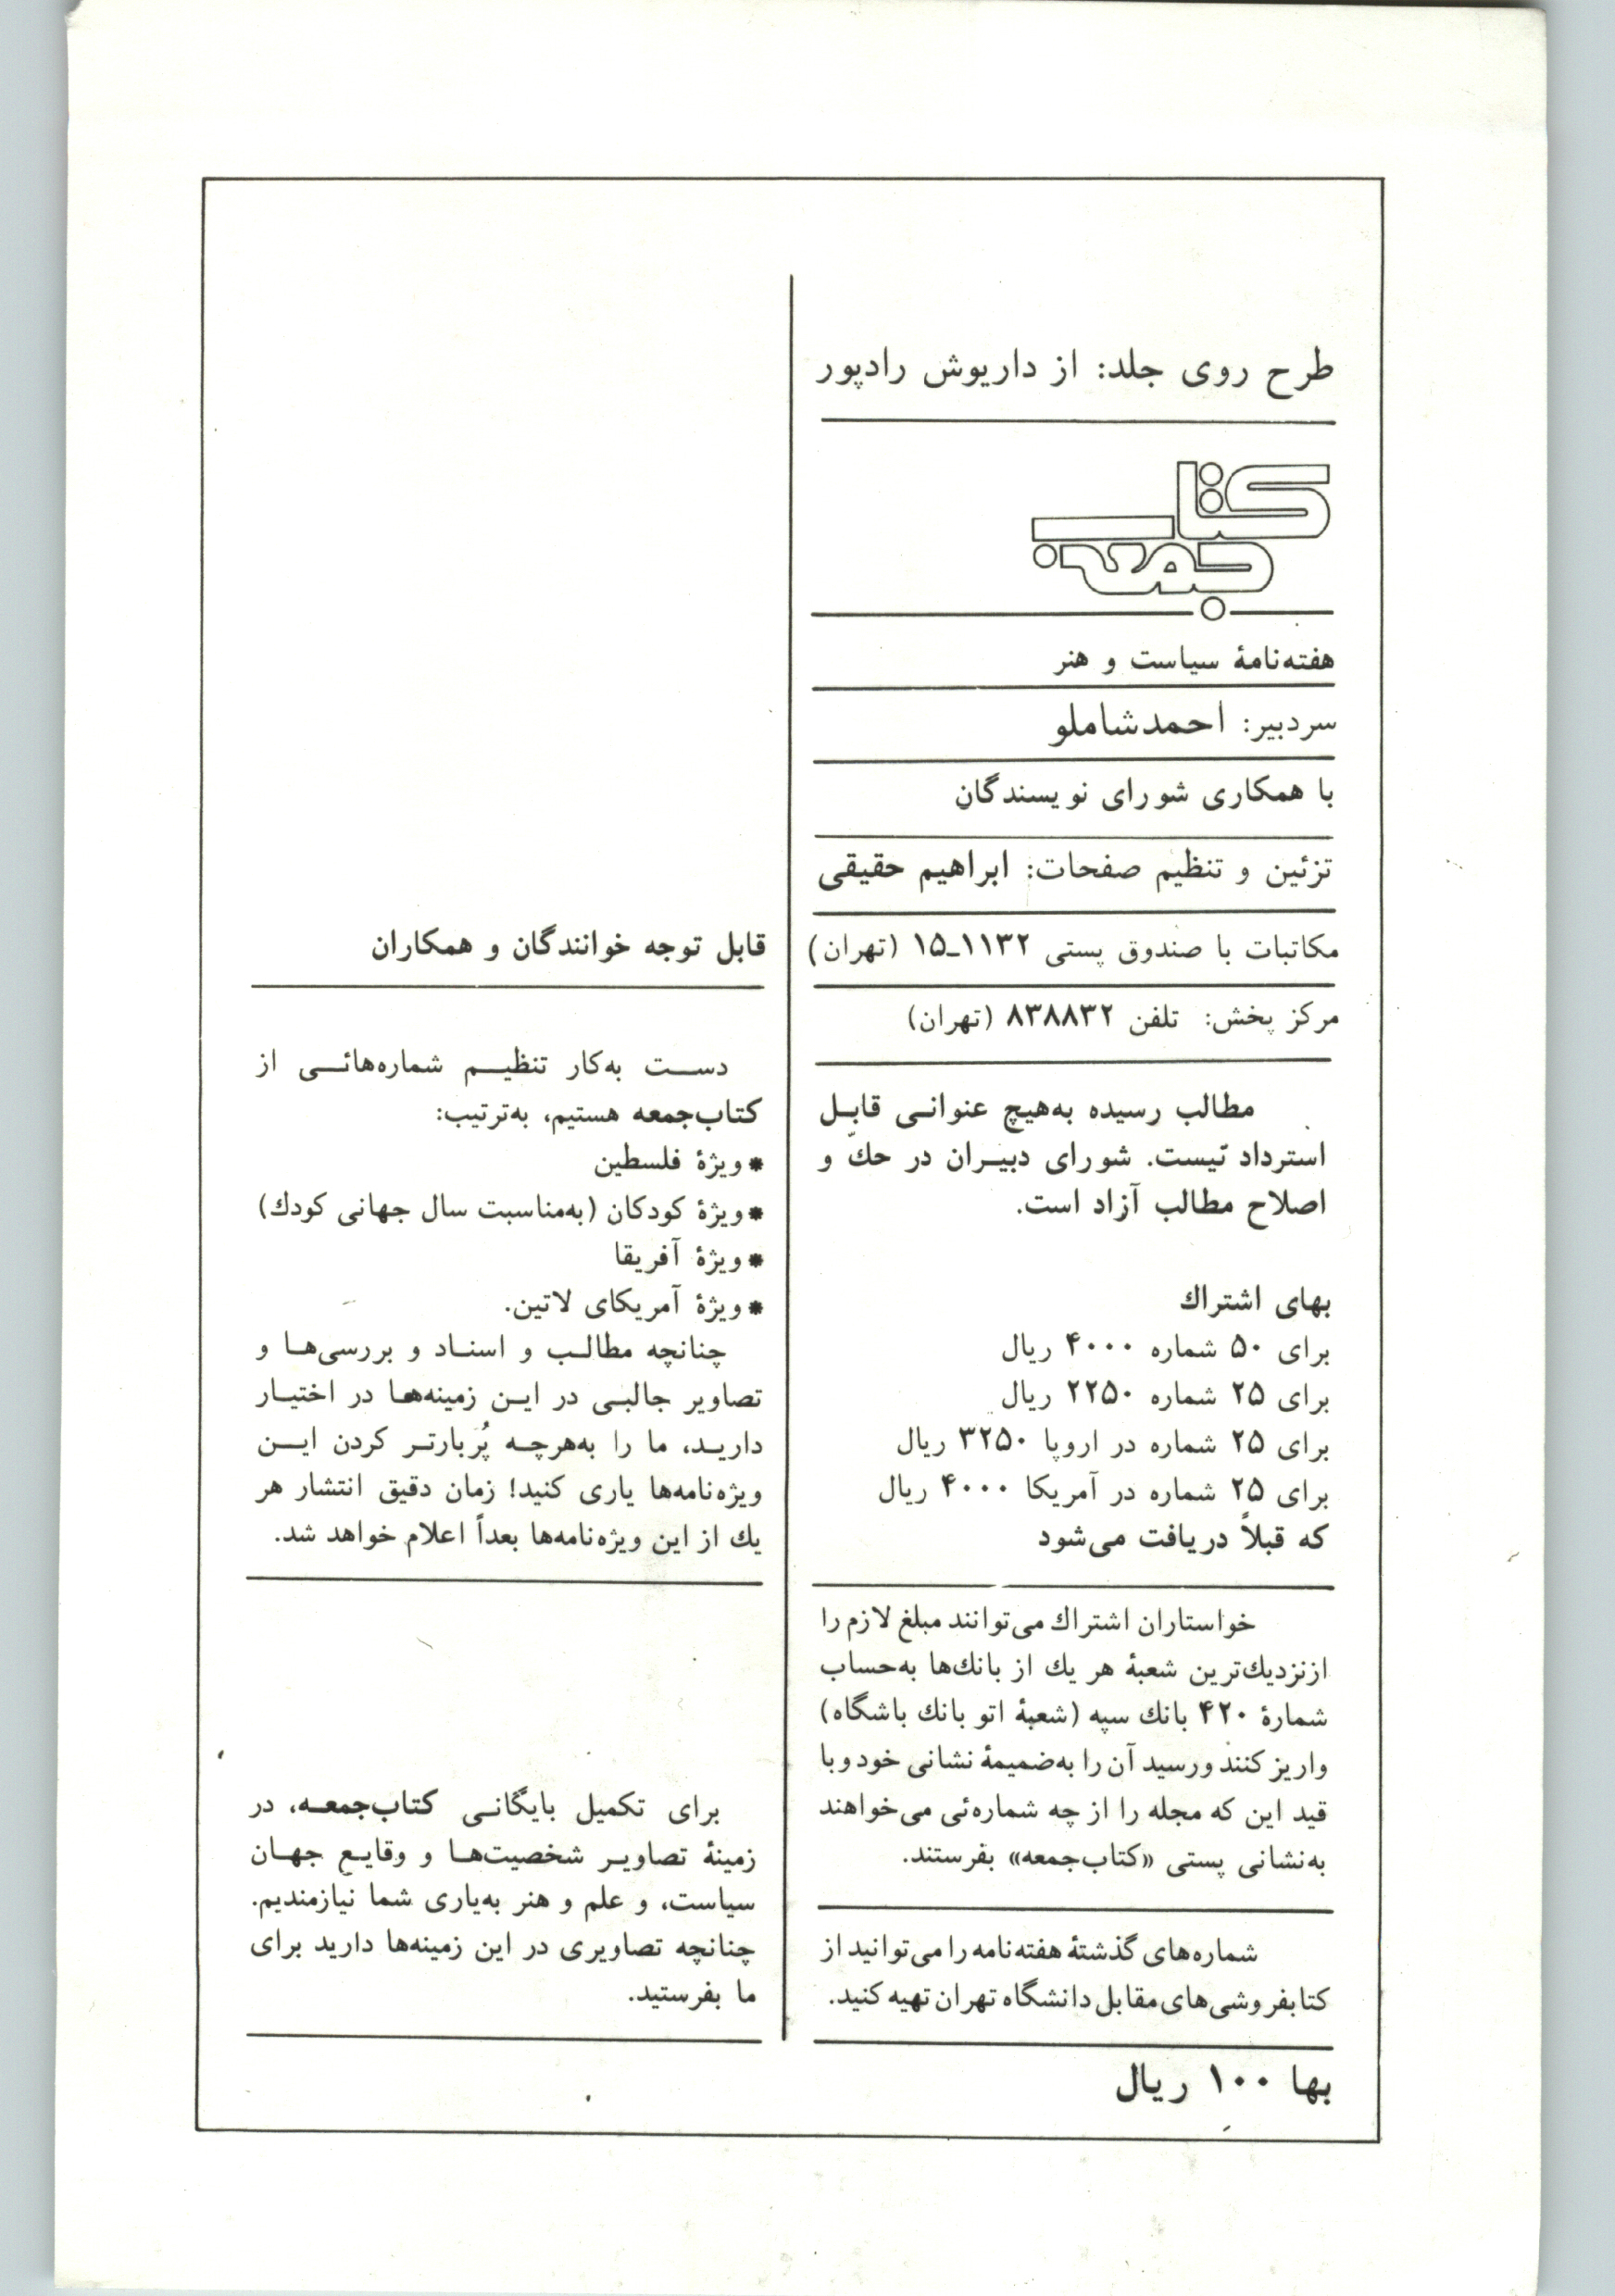 طرح روی جلد: از داریوش رادپور
کتاب
جمعه
هفته‌نامهٔ سیاست و هنر
سردبیر: احمد شاملو
با همکاری شورای نویسندگان
تزئین و تنظیم صفحات: ابراهیم حقیقی
مکاتبات با صندوق پستی ۱۱۳۲ـ۱۵ (تهران)
مرکز پخش: تلفن ۸۳۸۸۳۲ (تهران)
مطالب رسیده به‌هیچ عنوانی قابل
استرداد نیست. شورای دبیران در حكّ و
اصلاح مطالب آزاد است.
بهای اشتراك
برای ۵۰ شماره ۴۰۰۰ ریال
برای ۲۵ شماره ۲۲۵۰ ریال
برای ۲۵ شماره در اروپا ۳۲۵۰ ریال
برای ۲۵ شماره در آمریکا ۴۰۰۰ ریال
که قبلاً دریافت می‌شود
خواستاران اشتراك می‌توانند مبلغ لازم را
از نزدیك‌ترین شعبهٔ هر یك از بانك‌ها به‌حساب
شمارهٔ ۴۲۰ بانك سپه (شعبهٔ اتو بانك باشگاه)
واریز کنند و رسید آن را به‌ضمیمهٔ نشانی خود و با
قید این که مجله را از چه شماره‌ئی می‌خواهند
به‌نشانی پستی «کتاب‌جمعه» بفرستند.
شماره‌های گذشتهٔ هفته‌نامه را می‌توانید از
کتابفروشی‌های مقابل دانشگاه تهران تهیه کنید.
بها ۱۰۰ ریال
قابل توجه خوانندگان و همکاران
دست به‌کار تنظیم شماره‌هائی از
کتاب‌جمعه هستیم، به‌ترتیب:
* ویژهٔ فلسطین
* ویژهٔ کودکان (به‌مناسبت سال جهانی کودك)
* ویژهٔ آفریقا
* ویژهٔ آمریکای لاتین.
چنانچه مطالب و اسناد و بررسی‌ها و
تصاویر جالبی در این زمینه‌ها در اختیار
دارید، ما را به‌هرچه پُربارتر کردن این
ویژه‌نامه‌ها یاری کنید! زمان دقیق انتشار هر
یك از این ویژه‌نامه‌ها بعداً اعلام خواهد شد.
برای تکمیل بایگانی کتاب‌جمعه، در
زمینهٔ تصاویر شخصیت‌ها و وقایع جهان
سیاست، و علم و هنر به‌یاری شما نیازمندیم.
چنانچه تصاویری در این زمینه‌ها دارید برای
ما بفرستید.